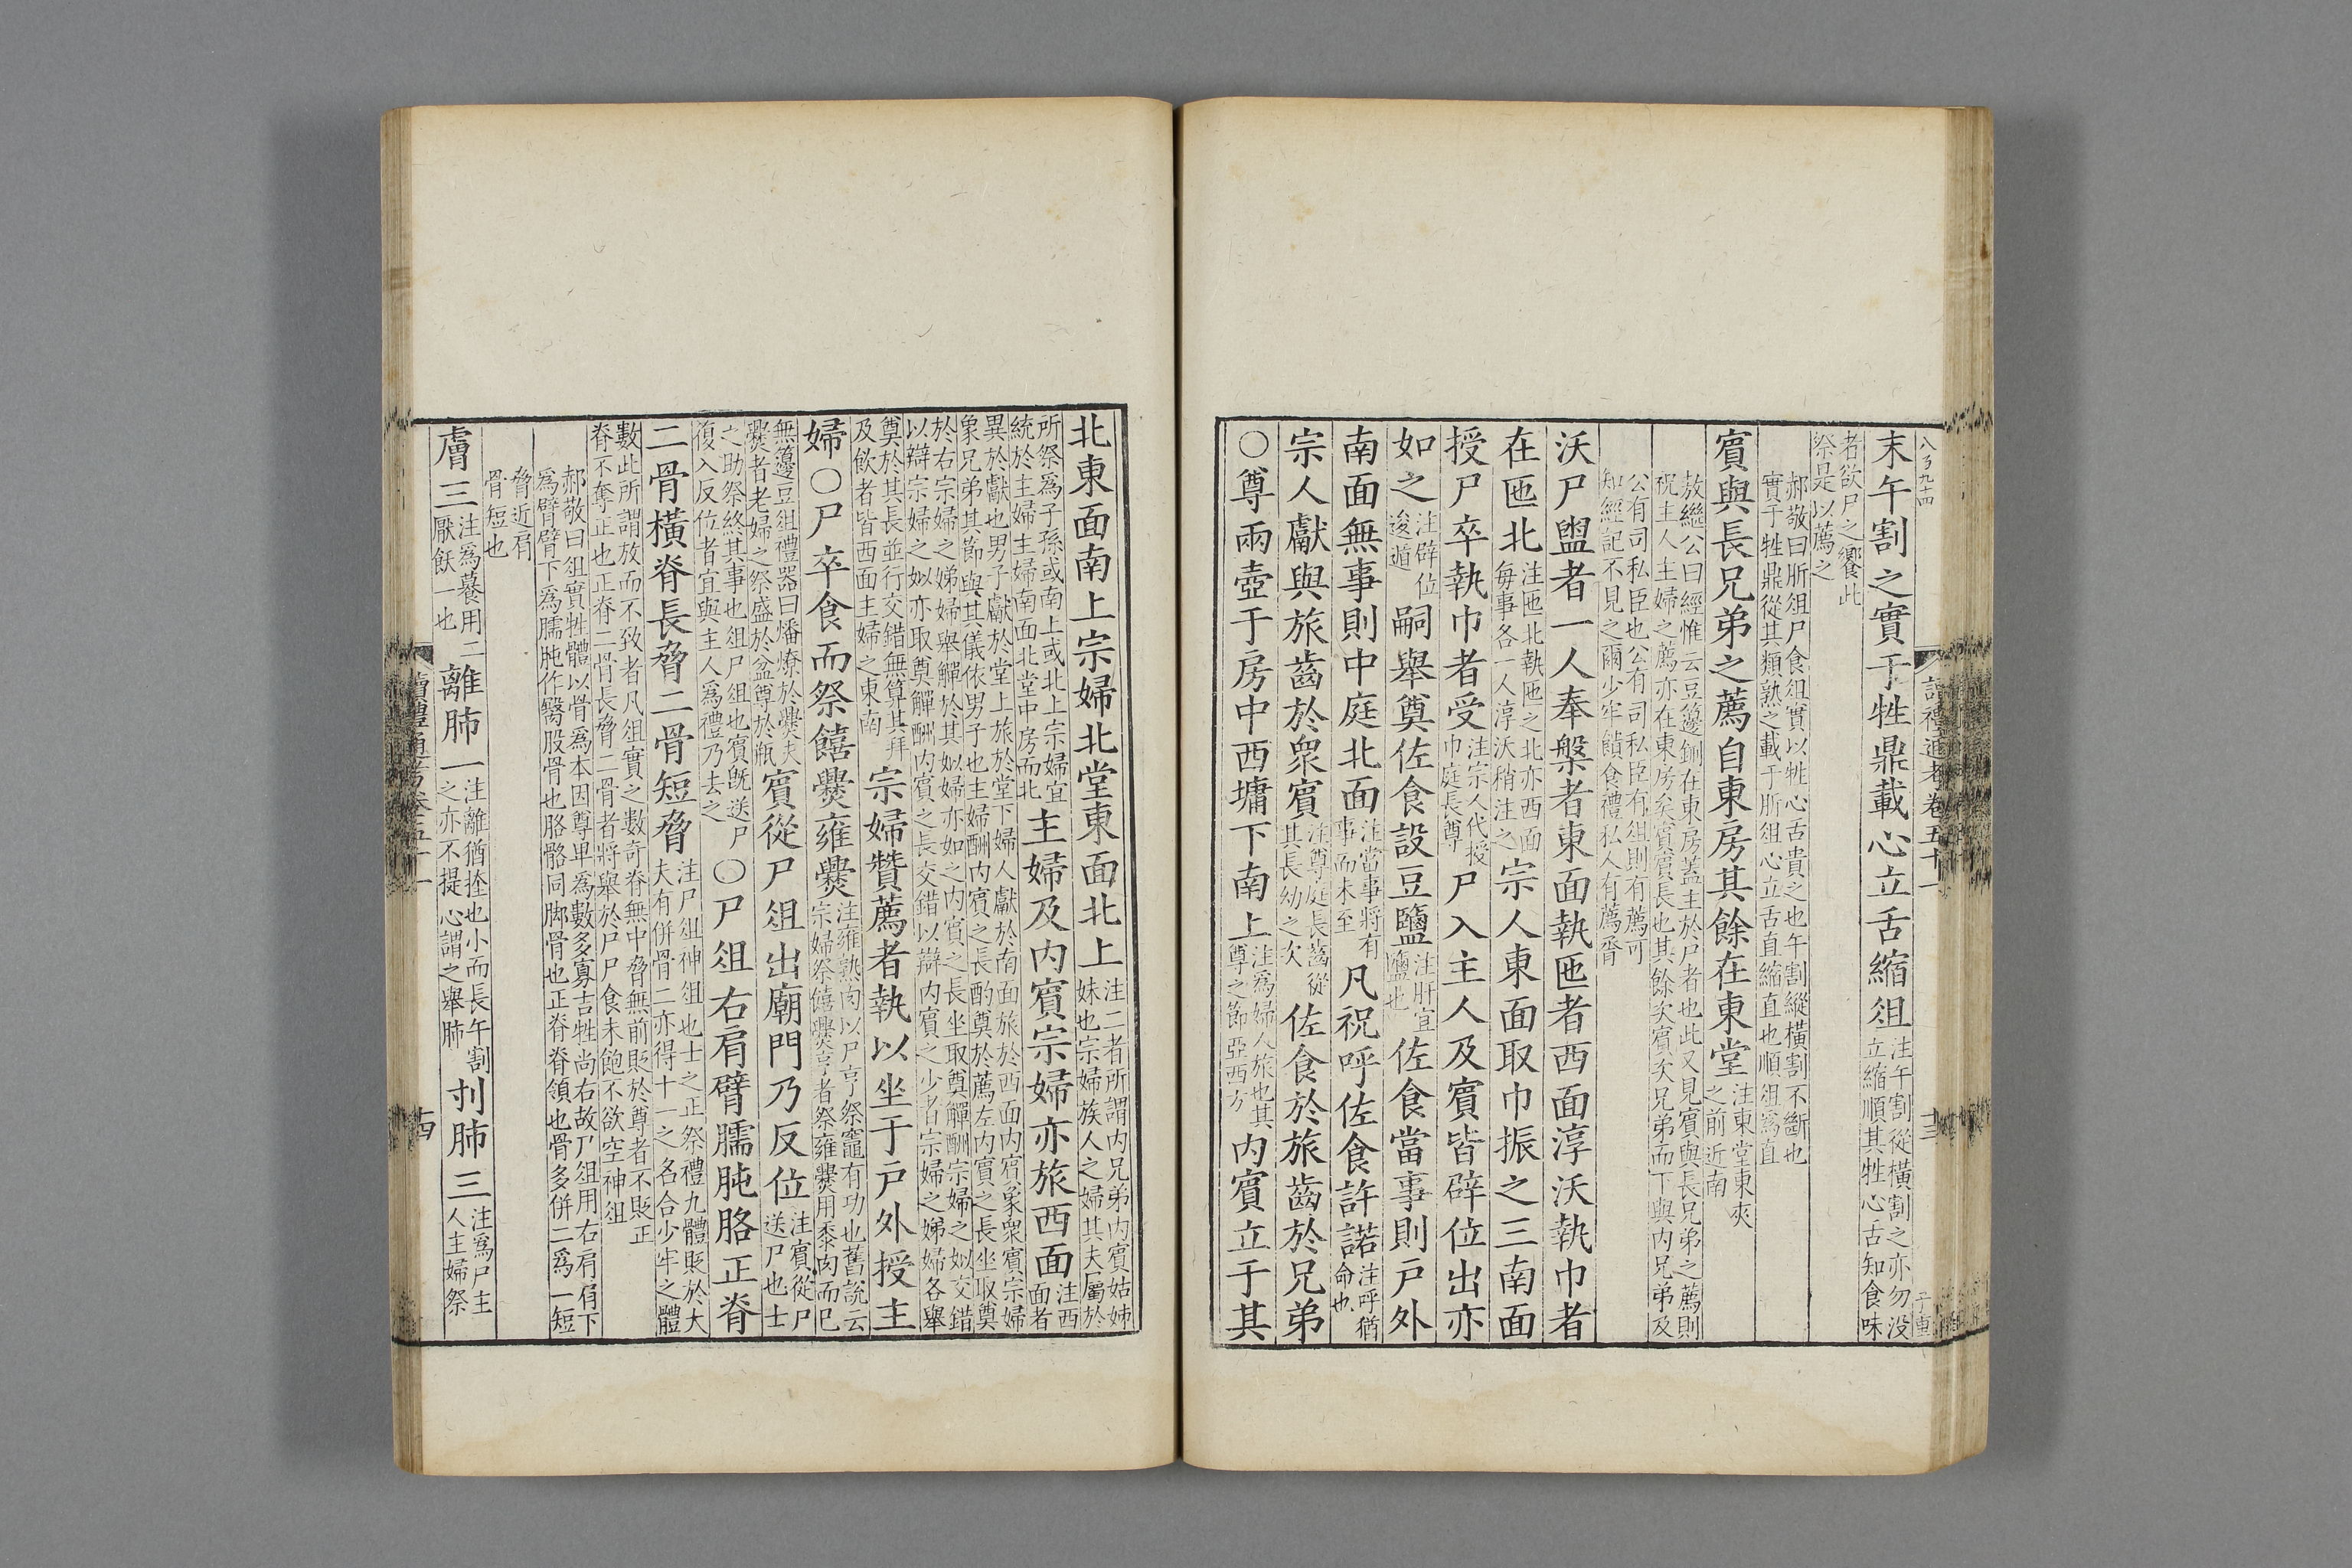 八百九十四
讀禮通考卷五十一
十三
子重
末午割之實于牲鼎載心立舌縮俎注午割從橫割之亦勿没立縮順其牲心舌知食味
者欲尸之饗此祭是以薦之
郝敬曰肵俎尸食俎實以牲心舌貴之也午割縱橫割不斷也實于牲鼎從其類熟之載于肵俎心立舌直縮直也順俎爲直
賓與長兄弟之薦自東房其餘在東堂注東堂東夾之前近南
敖繼公曰經惟云豆籩鉶在東房蓋主於尸者也此又見賓與長兄弟之薦則祝主人主婦之薦亦在東房矣賓賓長也其餘次賓次兄弟而下與内兄弟及
公有司私臣也公有司私臣有俎則有薦可知經記不見之爾少牢饋食禮私人有薦脀
沃尸盥者一人奉槃者東面執匜者西面淳沃執巾者
在匜北注匜北執匜之北亦西面每事各一人淳沃稍注之宗人東面取巾振之三南面
授尸卒執巾者受注宗人代授巾庭長尊尸入主人及賓皆辟位出亦
如之注辟位逡遁嗣舉奠佐食設豆鹽注肝宜鹽也佐食當事則戶外
南面無事則中庭北面注當事將有事而未至凡祝呼佐食許諾注呼猶命也
宗人獻與旅齒於眾賓注尊庭長齒從其長幼之次佐食於旅齒於兄弟
○尊兩壺于房中西墉下南上注爲婦人旅也其尊之節亞西方内賓立于其
北東面南上宗婦北堂東面北上注二者所謂内兄弟内賓姑姊妹也宗婦族人之婦其夫屬於
所祭爲子孫或南上或北上宗婦宜統於主婦主婦南面北堂中房而北主婦及内賓宗婦亦旅西面注西面者
異於獻也男子獻於堂上旅於堂下婦人獻於南面旅於西面内賓象眾賓宗婦象兄弟其節與其儀依男子也主婦酬内賓之長酌奠於薦左内賓之長坐取奠
於右宗婦之娣婦舉觶於其姒婦亦如之内賓之長坐取奠觶酬宗婦之姒交錯以辯宗婦之姒亦取奠觶酬内賓之長交錯以辯内賓之少者宗婦之娣婦各舉
奠於其長並行交錯無算其拜及飲者皆西面主婦之東南宗婦贊薦者執以坐于戶外授主
婦○尸卒食而祭饎爨雍爨注雍熟肉以尸亨祭竈有功也舊說云宗婦祭饎爨亨者祭雍爨用黍肉而已
無籩豆俎禮器曰燔燎於爨夫爨者老婦之祭盛於盆尊於瓶賓從尸俎出廟門乃反位注賓從尸送尸也士
之助祭終其事也俎尸俎也賓既送尸復入反位者宜與主人爲禮乃去之○尸俎右肩臂臑肫胳正脊
二骨橫脊長脅二骨短脅注尸俎神俎也士之正祭禮九體貶於大夫有併骨二亦得十一之名合少牢之體
數此所謂放而不致者凡俎實之數奇脊無中脅無前貶於尊者不貶正脊不奪正也正脊二骨長脅二骨者將舉於尸尸食未飽不欲空神俎
郝敬曰俎實牲體以骨爲本因尊卑爲數多寡吉牲尚右故尸俎用右肩肩下爲臂臂下爲臑肫作膞股骨也胳骼同脚骨也正脊脊領也骨多併二爲一短
脅近肩骨短也
膚三注爲䬸用二厭飫一也離肺一注離猶捶也小而長午割之亦不提心謂之舉肺刌肺三注爲尸主人主婦祭
讀禮通考卷五十一
十四